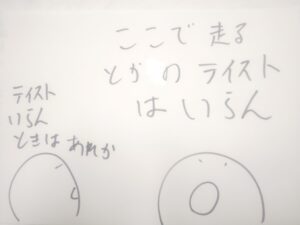 ここで走る
とかのテイスト
はいらん
テイスト
いらん
ときはあれか